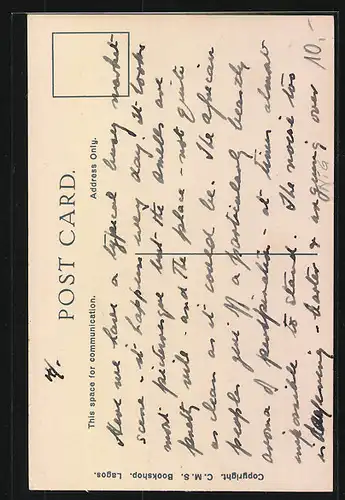 POST CARD.
This space for communication.
Address Only.
Here we have a typical busy market
scene - it happens every day. It looks
most picturesque but the smells are
pretty vile - and the place - not quite
as clean as it could be. The African
peoples give off a particularly beastly
aroma of perspiration - at times almost
impossible to stand. The noise too
is deafening - haters & arguing over
Copyright. C. M. S. Bookshop. Lagos.
10.-